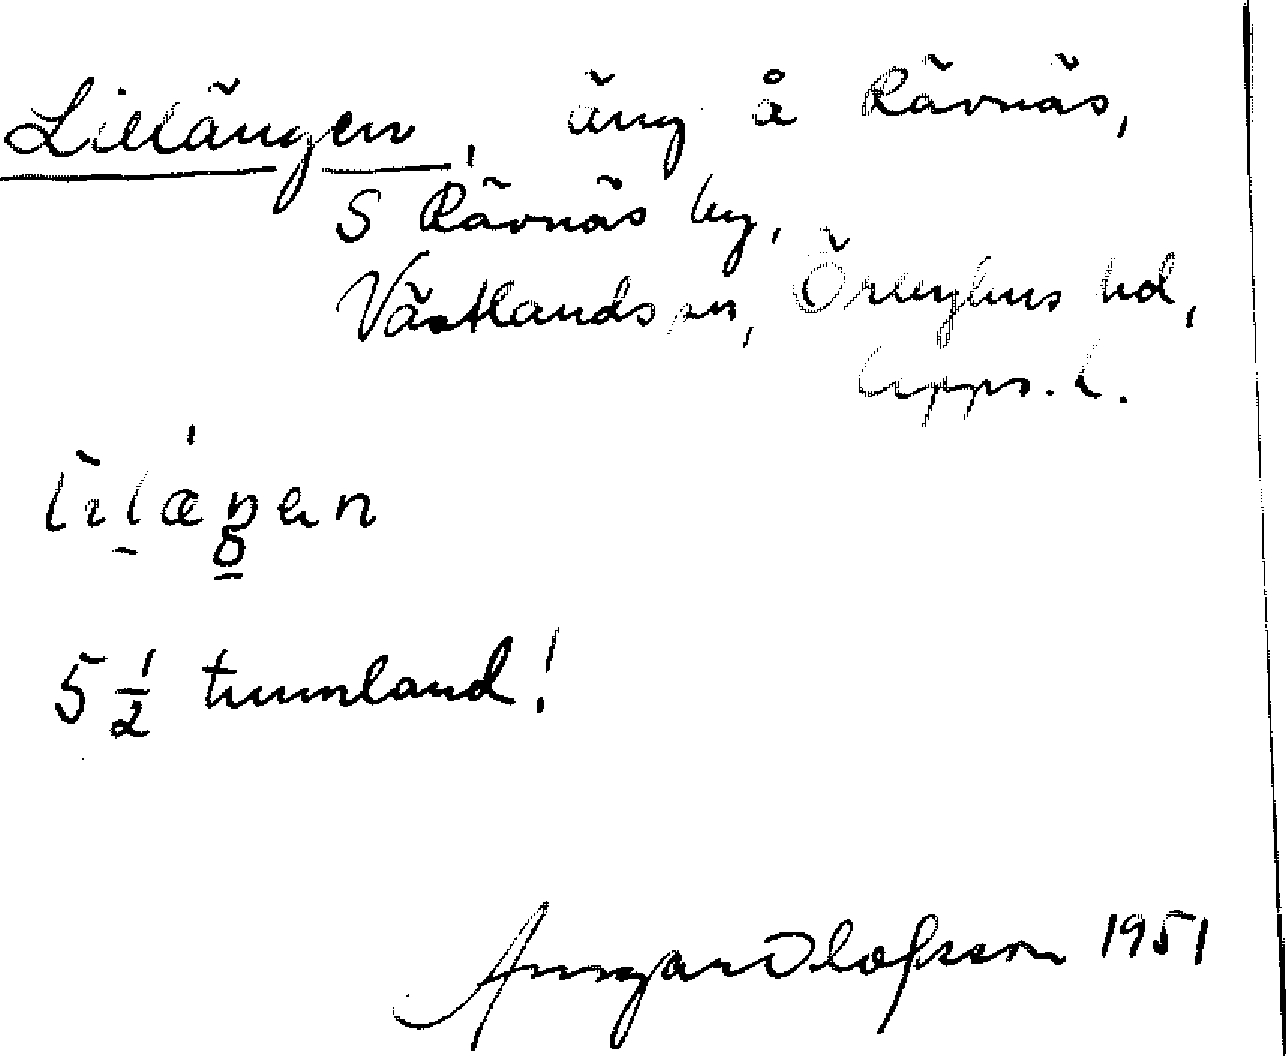 Lillängen, äng å Rävnäs,
S Rävnäs by,
Västlands sn, Örbyhus hd,
Upps. l.
5 1/2 tunnland!
Ansgar Olofsson 1951